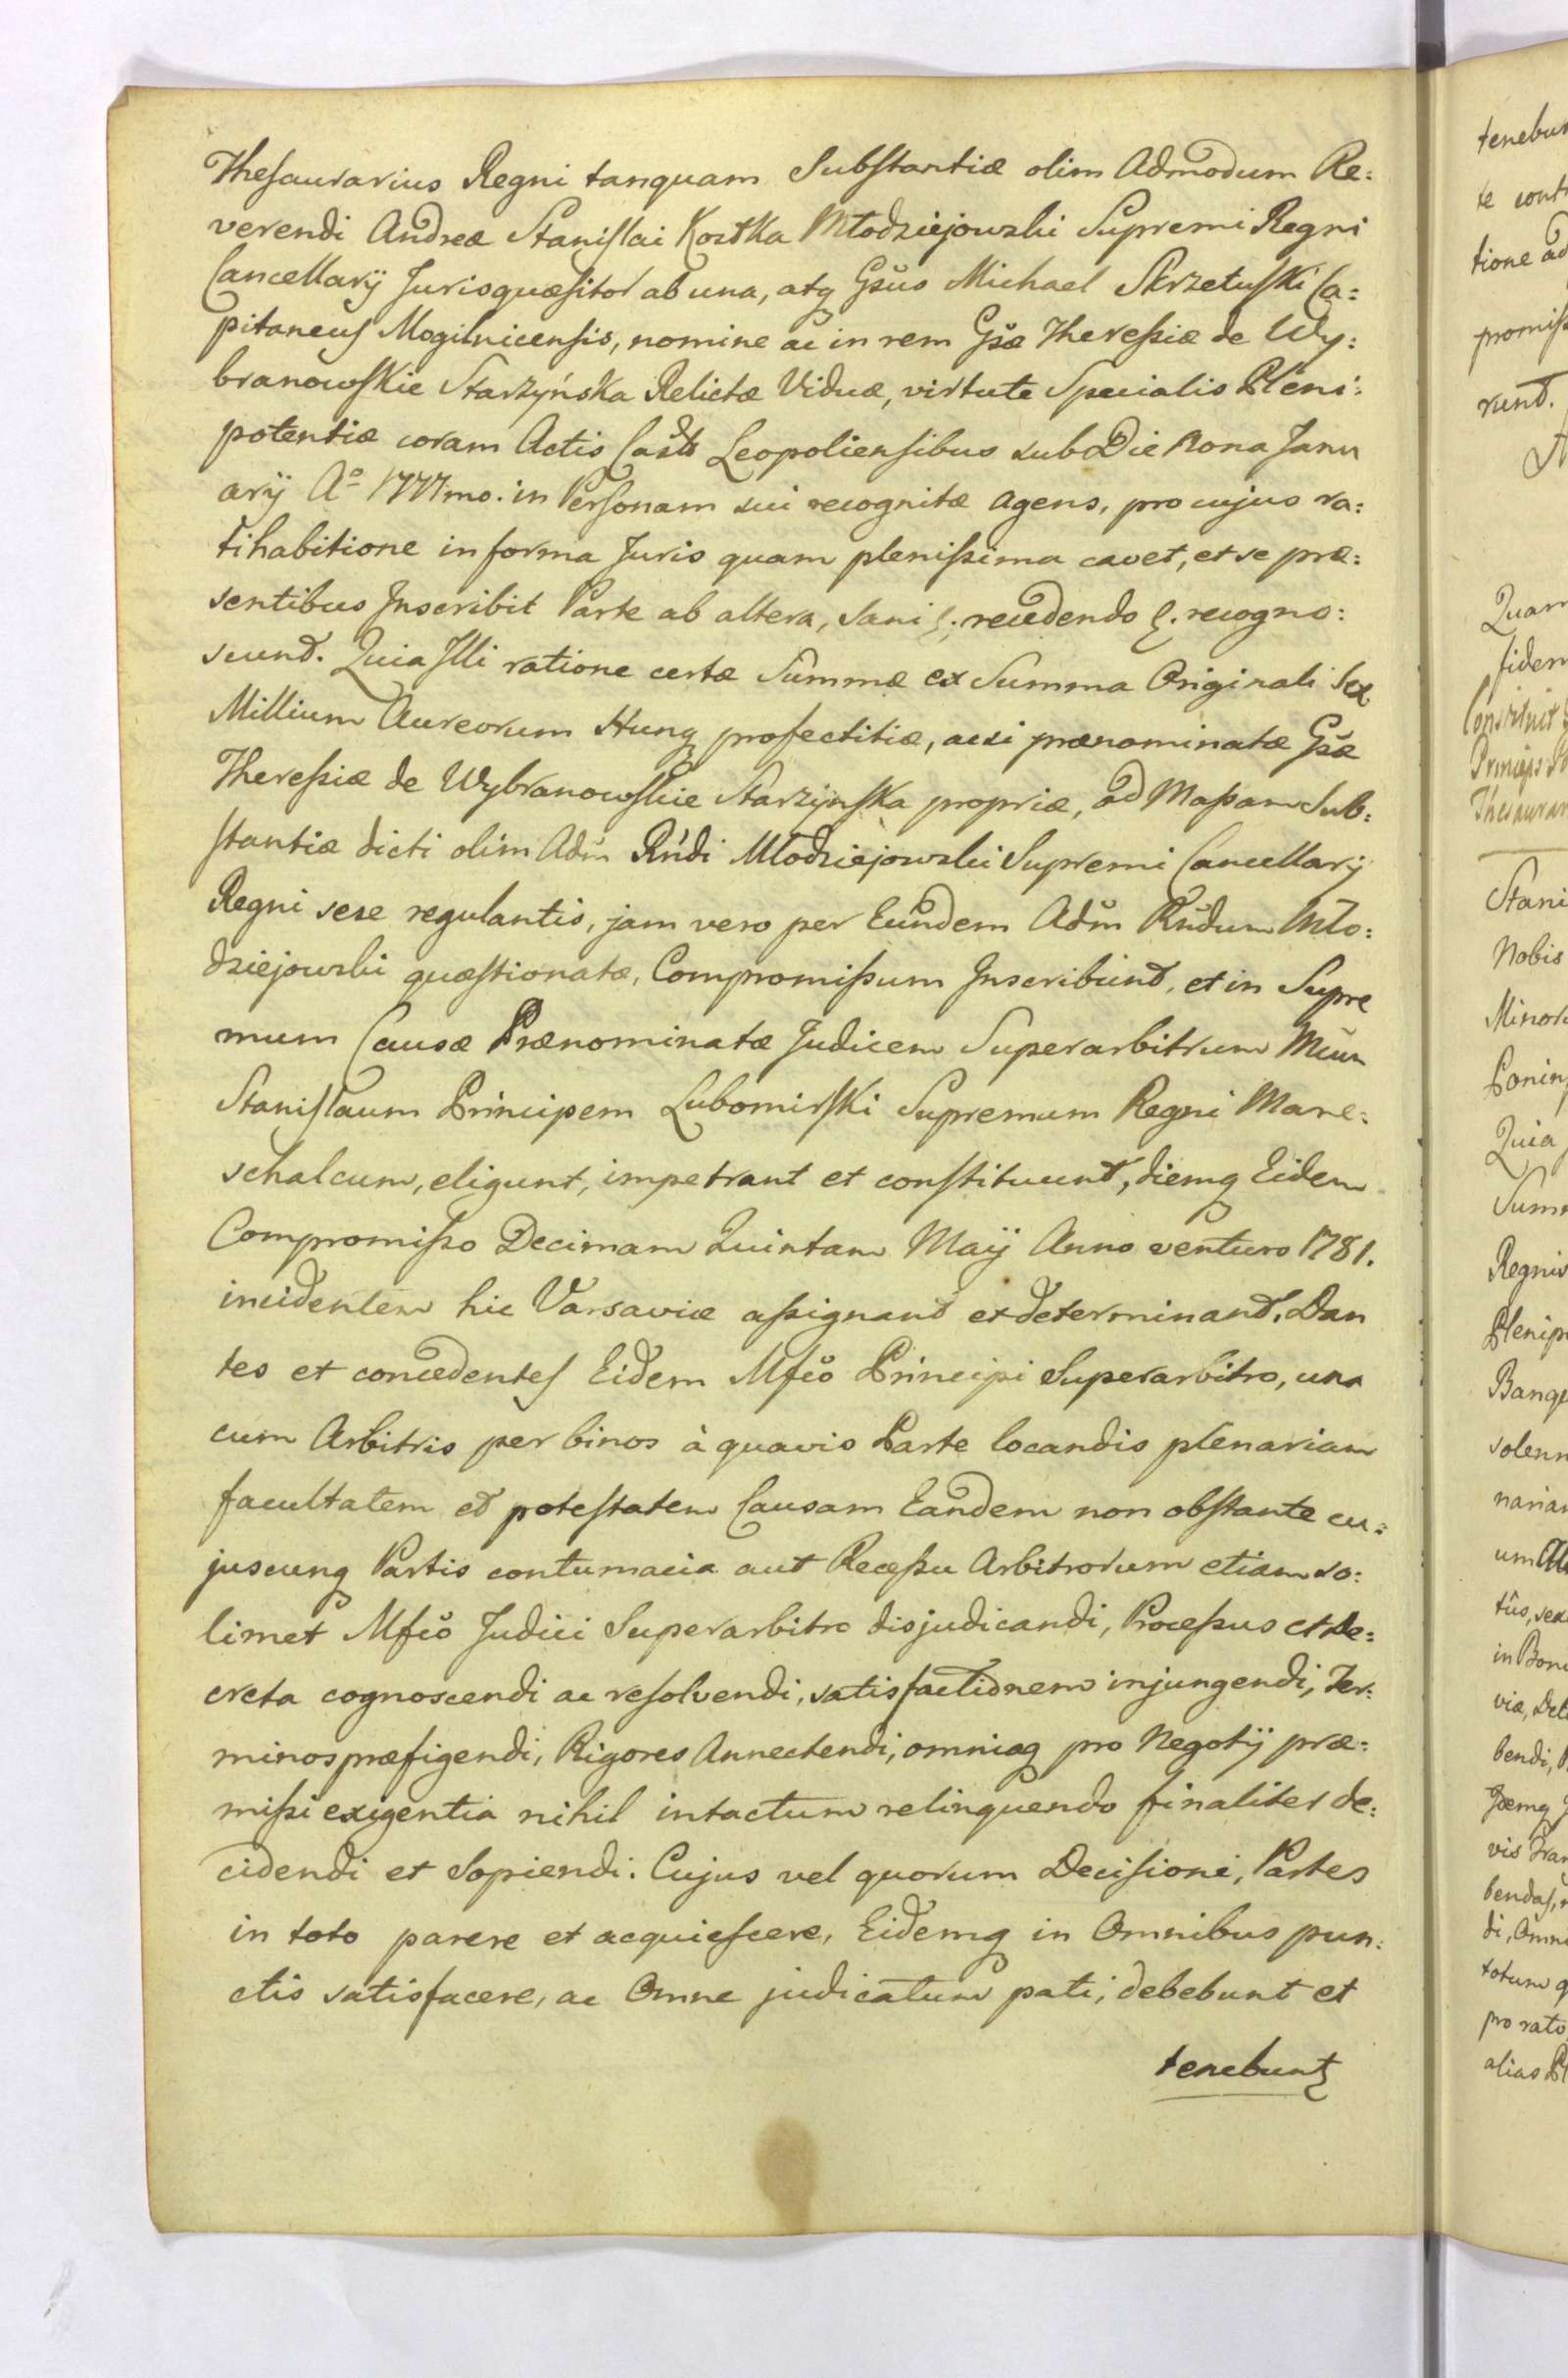 Thesaurarius Regni tanquam Substantiæ olim Admodum Re:
verendi Andreæ Stanislai Kostka Młodziejowski Supremi Regni
Cancellarij Jurisquæsitor ab una, atq Gsŭs Michael Skrzetuski Ca:
pitaneus Mogilnicensis, nomine ac in rem Gsæ Theressiæ de Wy:
branowskie Starzyńska Relictæ Viduæ, virtute Specialis Pleni:
potentiæ coram Actis Castr Leopoliensibus sub Die Nona Janu
arij Aº 1777mo. in Personam sui recognitæ agens, pro cujus ra:
tihabitione in forma Juris quam plenissima cavet, et se præ:
sentibus Inscribit Parte ab altera, Sani recedendo recogno:
scund. Quia Illi ratione certæ Summæ ex Summa Originali Sex
Millium Aureorum Hung profectitiæ, acsi prænominatæ Gsæ
Theressiæ de Wybranowskie Starzynska propriæ, ad Massam Sub:
stantiæ dicti olim Adm̃ Rńdi Młodziejowski Supremi Cancellarij
Regni sese regulantis, jam vero per Eundem Adm̃ Rñdum Mło:
dziejowski quæstionatæ, Compromissum Inscribund, et in Supre
mum Causæ Prænominatæ Judicem Superarbitrum
Stanislaum Principem Lubomirski Supremum Regni Mare:
schalcum, eligunt, impetrant et constituund, diemq Eidem
Compromisso Decimam Quintam Maij Anno venturo 1781.
incidentem hic Varsaviæ assignand et determinand. Dan
tes et concedentes Eidem Mfco Principi Superarbitro, una
cum Arbitris per binos à quavis Parte locandis plenariam
facultatem et potestatem Causam Eandem non obstante cu:
juscunq Partis contumacia aut Recessu Arbitrorum etiam so:
limet Mfco Judici Superarbitro disjudicandi, Processus et De:
creta cognoscendi ac resolvendi, satisfactionem injungendi, Ter:
minos præfigendi, Rigores Annectendi, omniaq pro Negotij præ:
missi exigentia nihil intactum relinquendo finaliter de:
cidendi et Sopiendi. Cujus vel quorum Decisioni, Partes
in toto parere et acquiescere, Eidemq in Omnibus pun:
ctis satisfacere, ac Omne judicatum pati, debebunt et
tenebunt
tenebun
te cont
tione ad
promiss
rund.
Quam
fidem
Constituit
Princeps
Thesaurar
Stani
Nobis
Minor
Ponin
Quia
Summ
Regni
Plenip
Bang
solenn
narian
um
tûs, sex
in Bon
viæ, Det
bendi,
Idemq
vis Tran
bendas,
di, Omn
totum q
pro rato
alias Pl